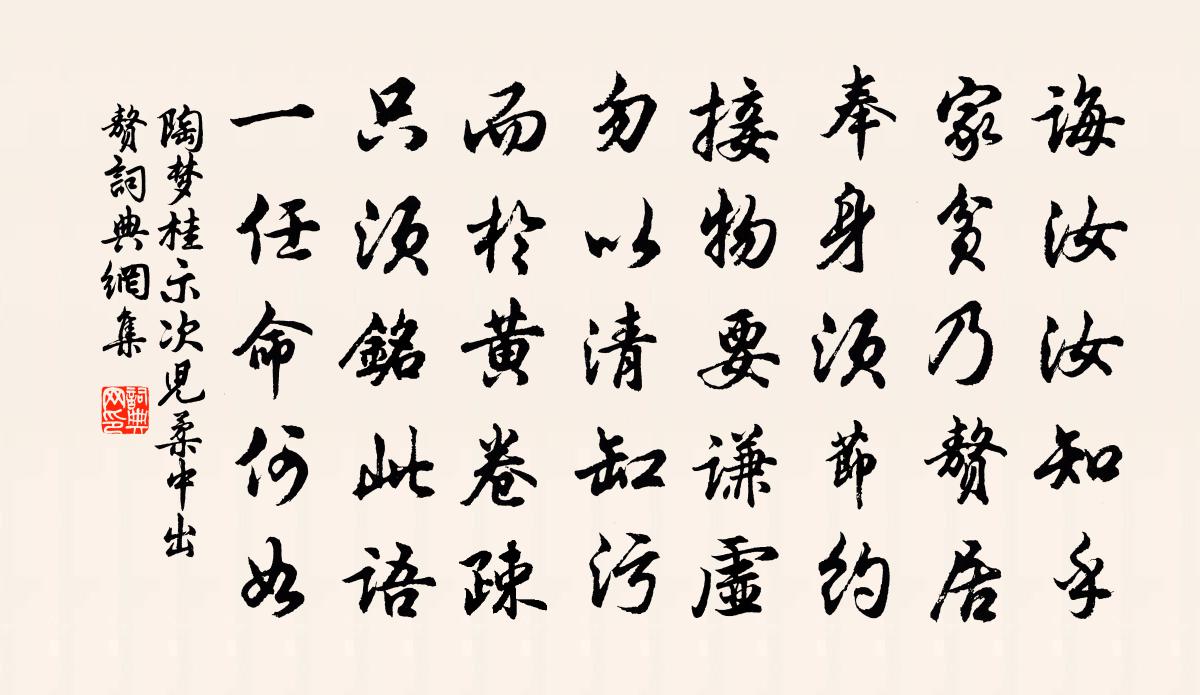 誨汝汝知乎
家貧乃贅居
奉身須節約
接物要謙虛
勿以清缸污
而於黃卷疎
只須銘此語
一任命何如
陶梦桂示次児柔中出
贅詞典網集
詞典网印